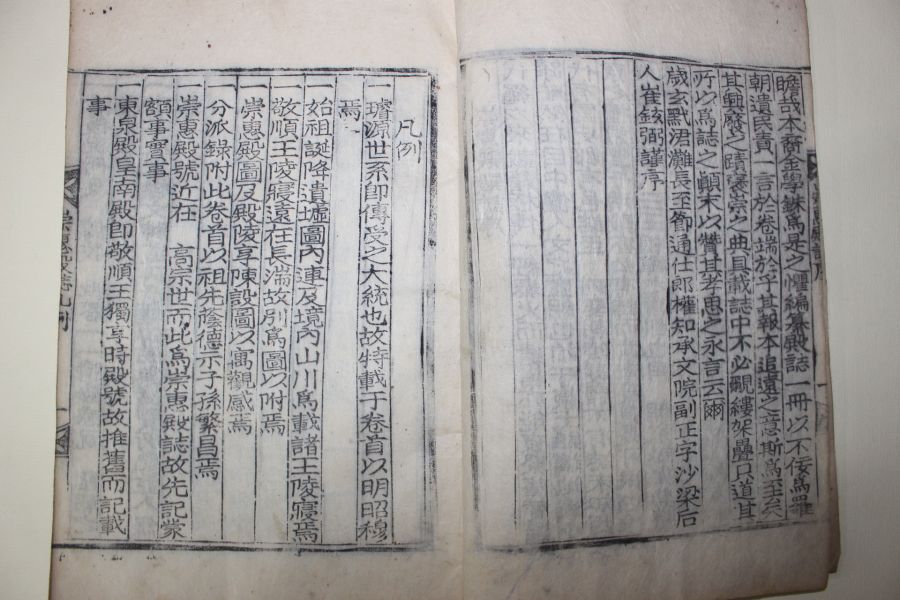 瞻哉本裔金學銖爲是之懼編纂殿誌一冊以不佞爲羅
朝遺民責一言於卷端於乎其報本追遠之意斯爲至矣
其興廢之蹟褒崇之典具載誌中不必覼縷架疊只道其
所以爲誌之顚末以贊其孝思之永言云爾
歲玄黓涒灘長至節通仕郎權知承文院副正字沙梁后
人崔鉉弼謹序
凡例
一璿源世系卽傳受之大統也故特載于卷首以明昭穆
焉
一始祖誕降遺墟圖內連及境內山川爲載諸王陵寢焉
敬順王陵寢遠在長湍故別爲圖以附焉
一崇惠殿圖及殿陵享陳設圖以寓觀感焉
分派錄附此卷首以祖先蔭德示子孫繁昌焉
一崇惠殿號近在 高宗世而此爲崇惠殿誌故先記蒙
額事實事
一東泉殿皇南殿卽敬順王獨享時殿號故推舊而記載
事